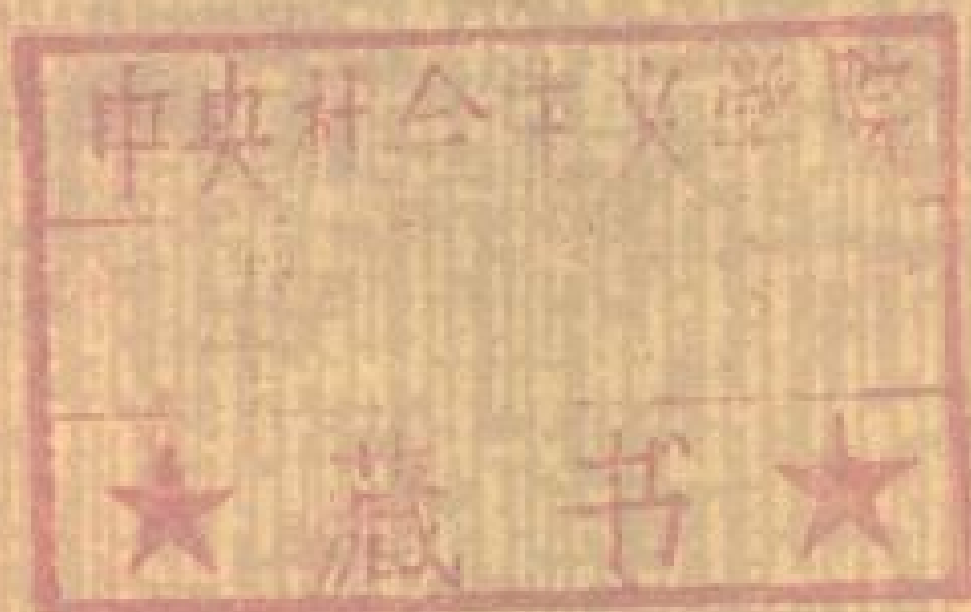 中央社会主义学院
★ 藏书 ★